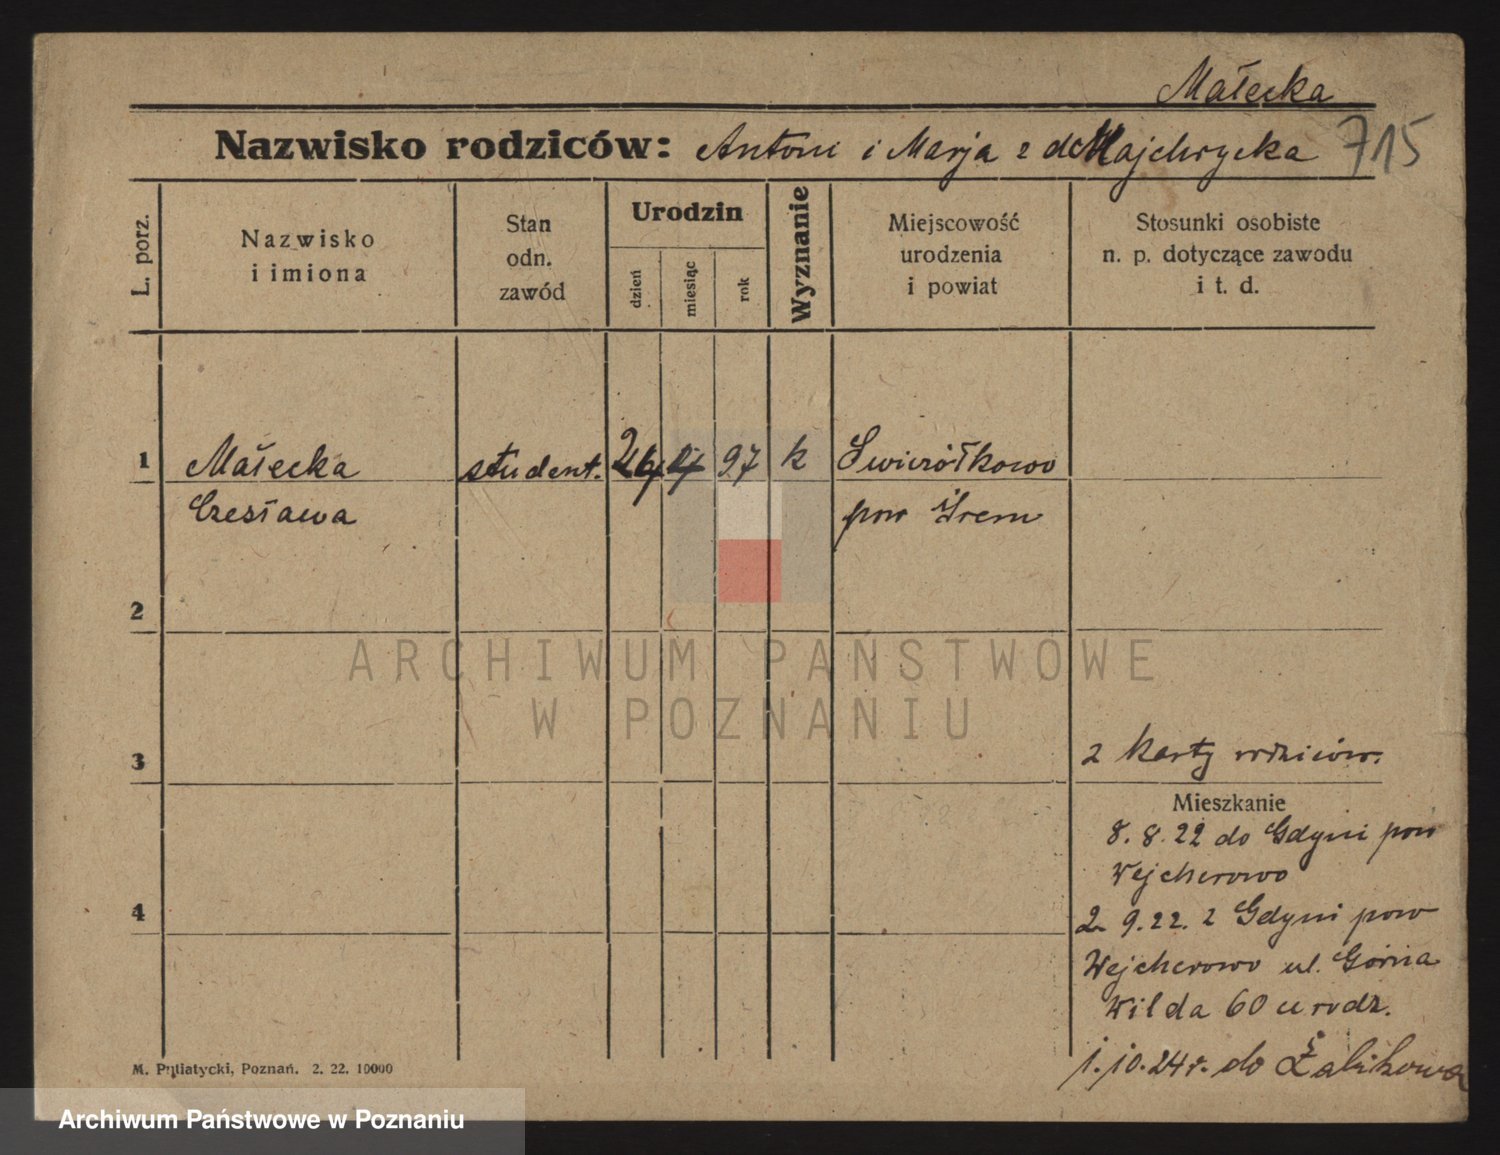 Małecka
Nazwisko rodziców: Antoni i Marja z d. Majchrzycka 715
L. porz.
Nazwisko
i imiona
Stan
odn.
zawód
Urodzin
dzień
miesiąc
rok
Wyznanie
Miejscowość
urodzenia
i powiat
Stosunki osobiste
n. p. dotyczące zawodu
i t. d.
1 Małecka student. 4 97 k
Czesława pow Śrem
2
3
z karty rodziców.
Mieszkanie
8. 8. 22 do Gdyni pow
Wejcherowo
4
2. 9. 22. z Gdyni pow
Wejcherowo ul. Górna
Wilda 60 u rodz.
1. 10. 24 r. do Żabikowa
M. Putiatycki, Poznań. 2. 22. 10000
ARCHIWUM PAŃSTWOWE
W POZNANIU
Archiwum Państwowe w Poznaniu